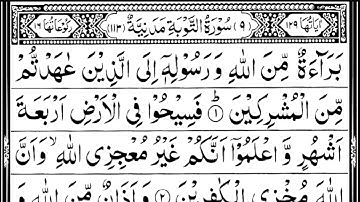 اٰيَاتُهَا ١٢٩ (٩) سُوْرَةُ التَّوْبَةِ مَدَنِيَّةٌ (١١٣) رُكُوْعَاتُهَا ١٦
بَرَآءَةٌ مِّنَ اللّٰهِ وَرَسُوْلِهٖۤ اِلَى الَّذِيْنَ عٰهَدْتُّمْ
مِّنَ الْمُشْرِكِيْنَ ؕ ١ فَسِيْحُوْا فِى الْاَرْضِ اَرْبَعَةَ
اَشْهُرٍ وَّاعْلَمُوْۤا اَنَّكُمْ غَيْرُ مُعْجِزِى اللّٰهِ ۙ وَاَنَّ
اللّٰهَ مُخْزِى الْكٰفِرِيْنَ ٢ وَاَذَانٌ مِّنَ اللّٰهِ وَ